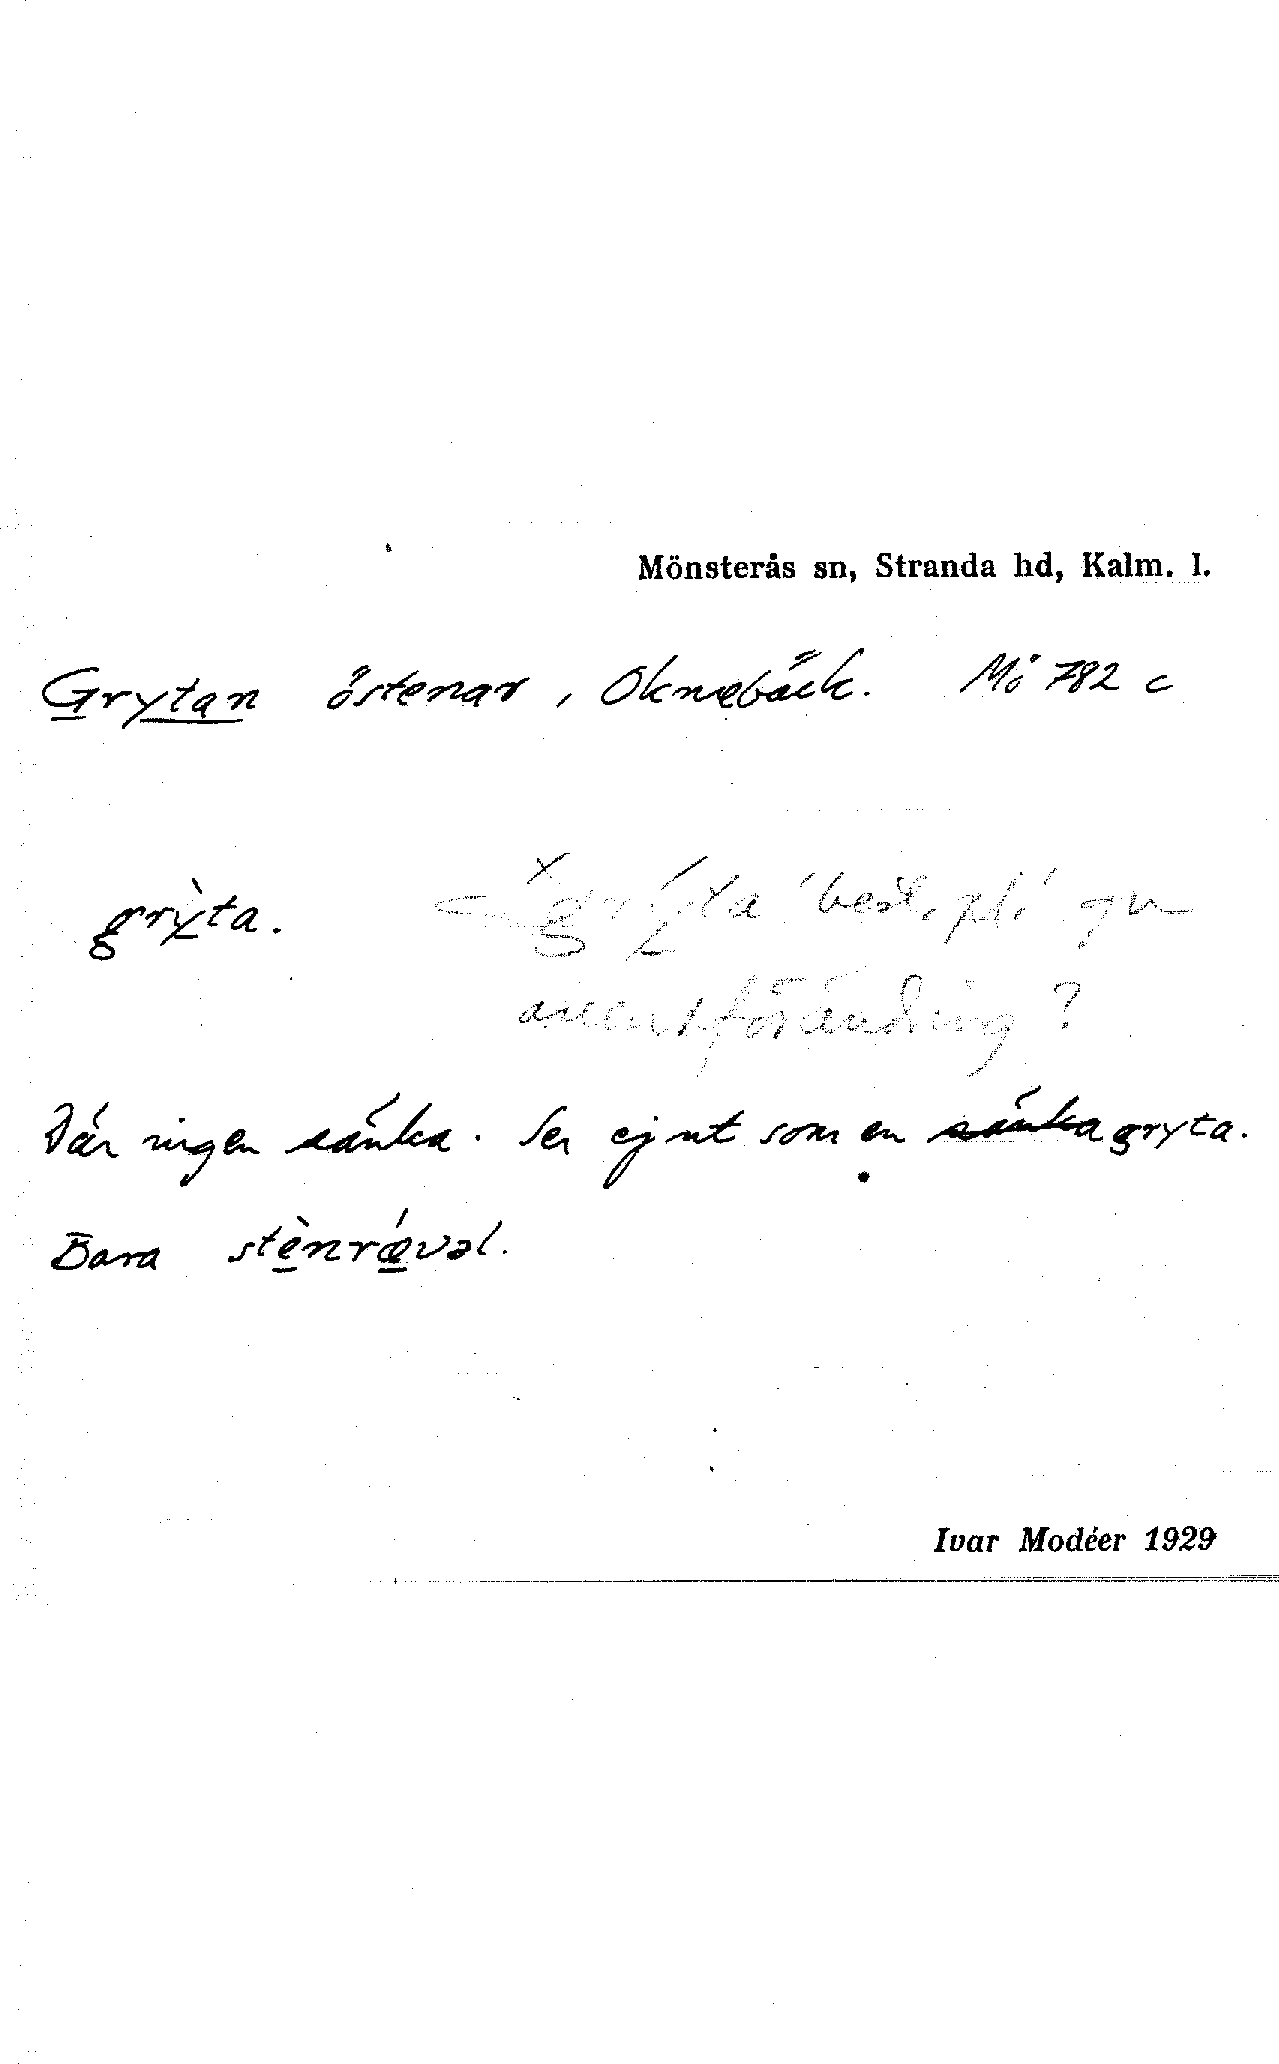 Mönsterås sn, Stranda hd, Kalm. l.
Grytan östenar, Oknebäck. Mö 782 c
grỳta. grýta best. pl.
accentförändring?
Där ingen sänka. Ser ej ut som en sänka gryta.
Bara stènrǽvəl.
Ivar Modéer 1929